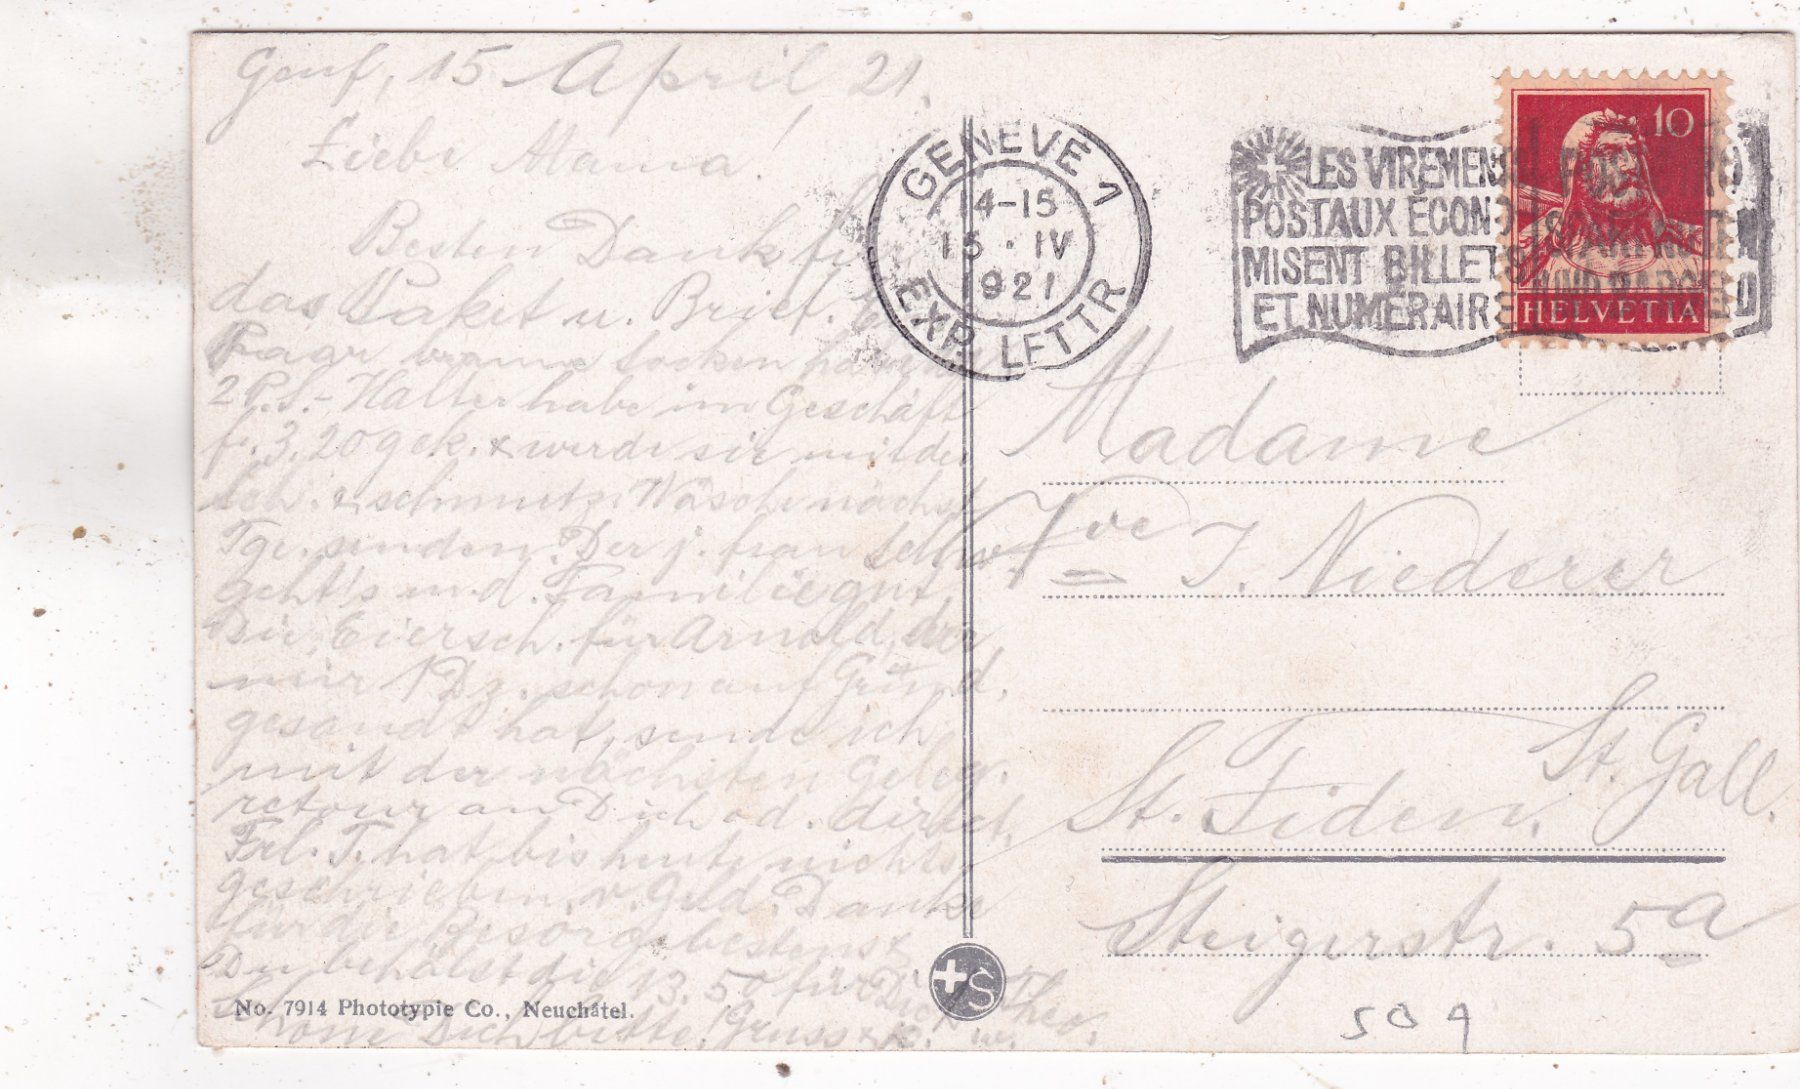 Genf, 15. April 21.
Liebe Mama!
Besten Dank für
das Paket u. Brief.
Paar braune Socken habe
2 P. S.-Halter habe im Geschäft
f. 3.20 gek. & werde sie mit der
sch. & schmutz. Wäsche nächst.
Tge. senden. Der j. frau
geht's m. d. Familie gut.
Die Eiersch. für Arnold, der
mir 1 Dz. schon auf Gründ.
gesandt hat, sende ich
mit der nächsten Geleg.
retour an Dich od. direkt.
Frl. T. hat bis heute nichts
geschrieben v. Geld. Danke
für die Besorg. bestens &
Du behälst die 13.50 für Dich
Schone Dich bitte. Gruss & K. w. Theo.
No. 7914 Phototypie Co., Neuchâtel.
+S
GENÈVE 1
14-15
15·IV
1921
EXP. LETTR
LES VIREMEN
POSTAUX ÉCONO
MISENT BILLETS
ET NUMÉRAIRE
10
HELVETIA
Madame
Vve J. Niederer
St. Gall.
St. Fiden.
Steigerstr. 5a
509